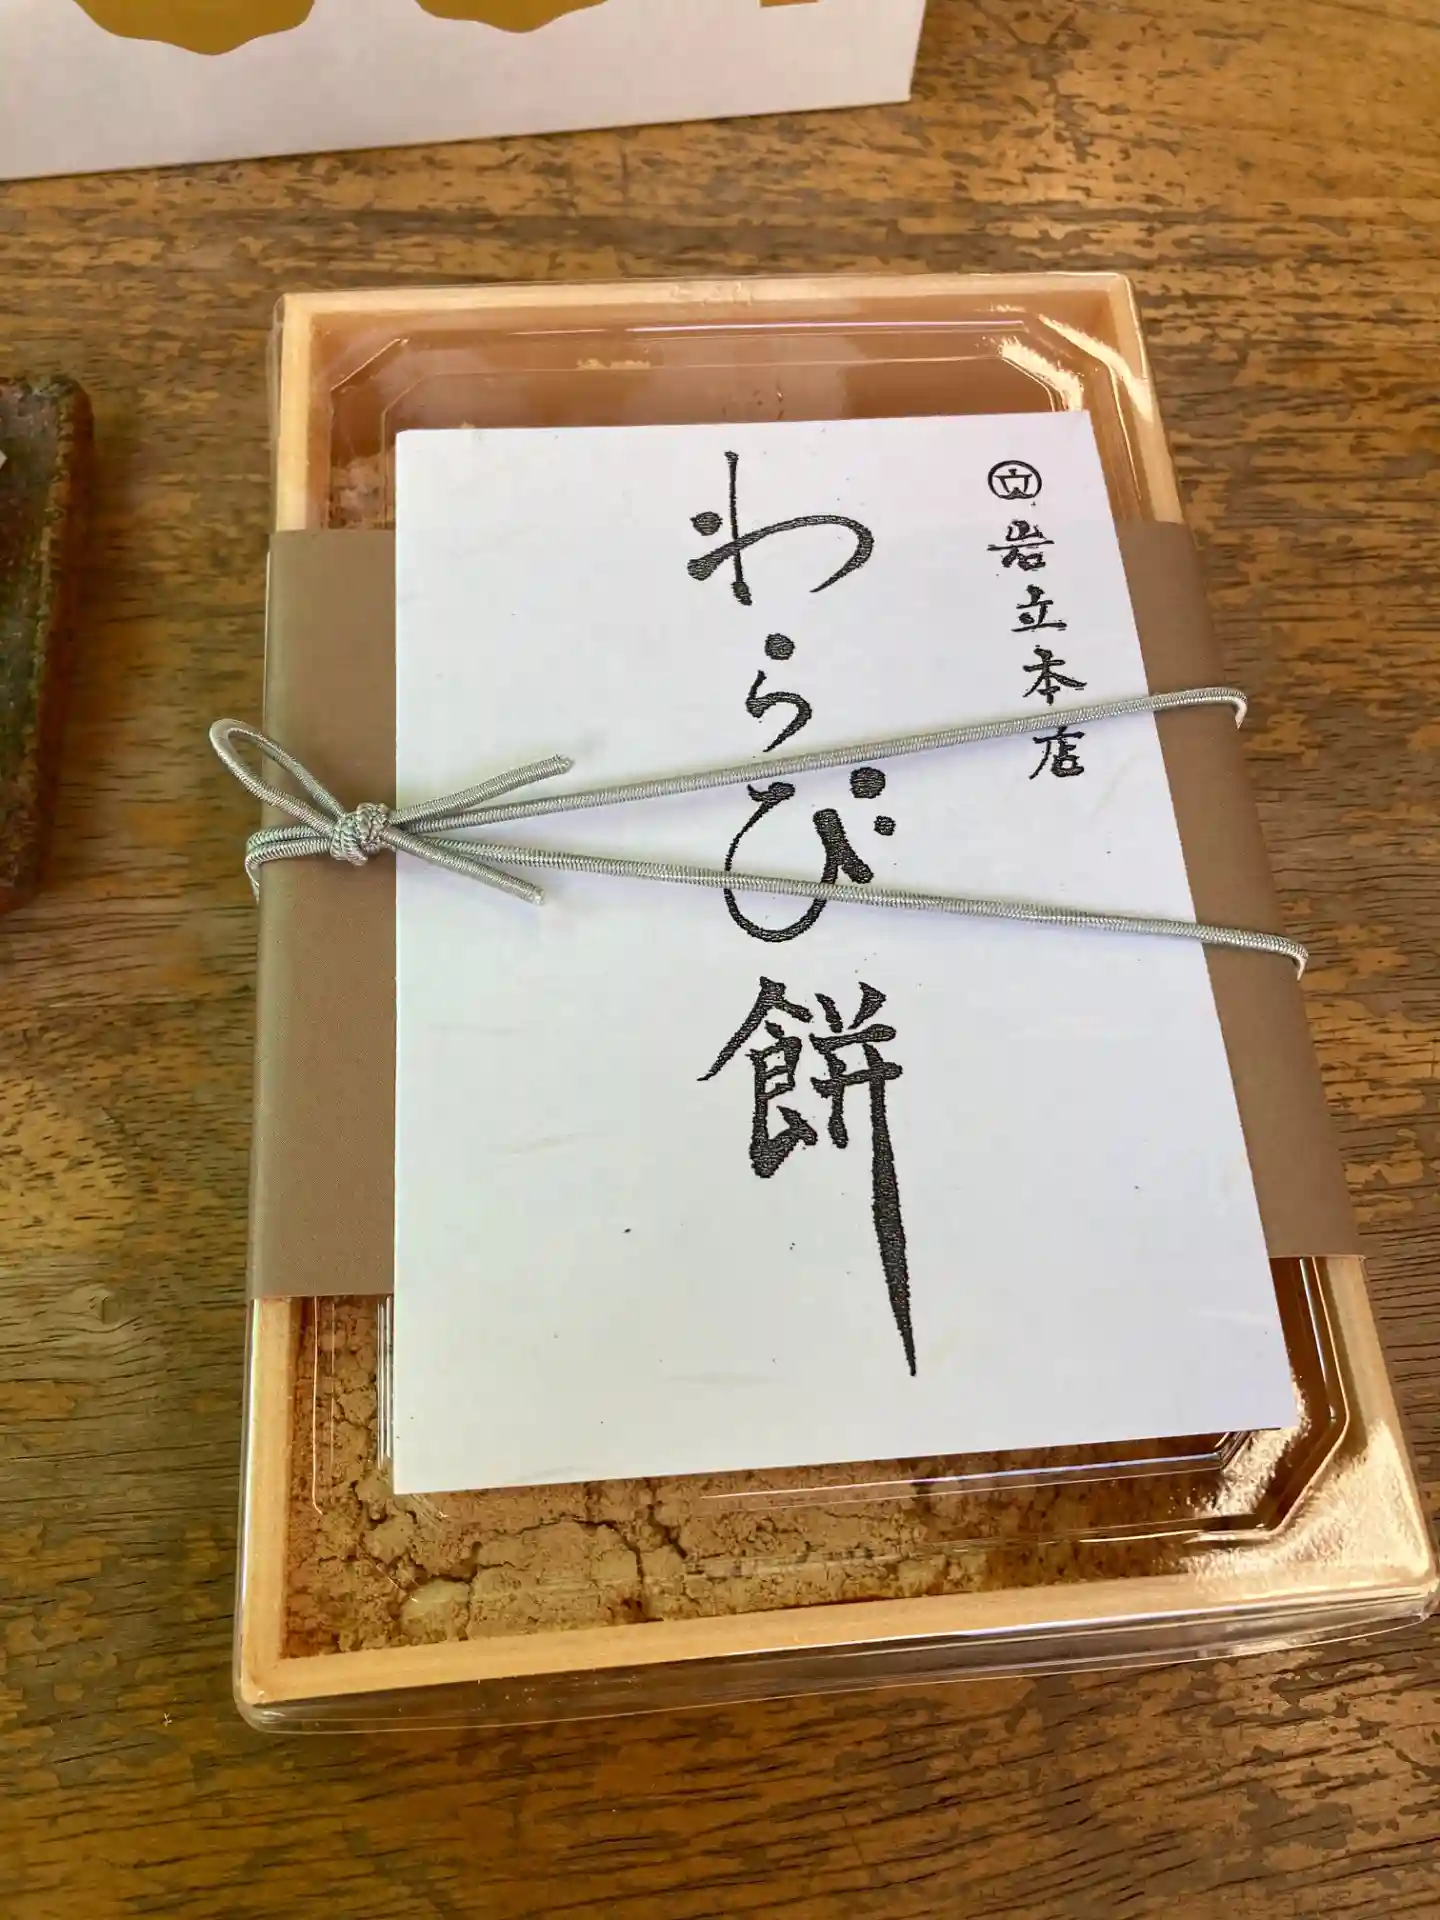 岩立本店
わらび餅